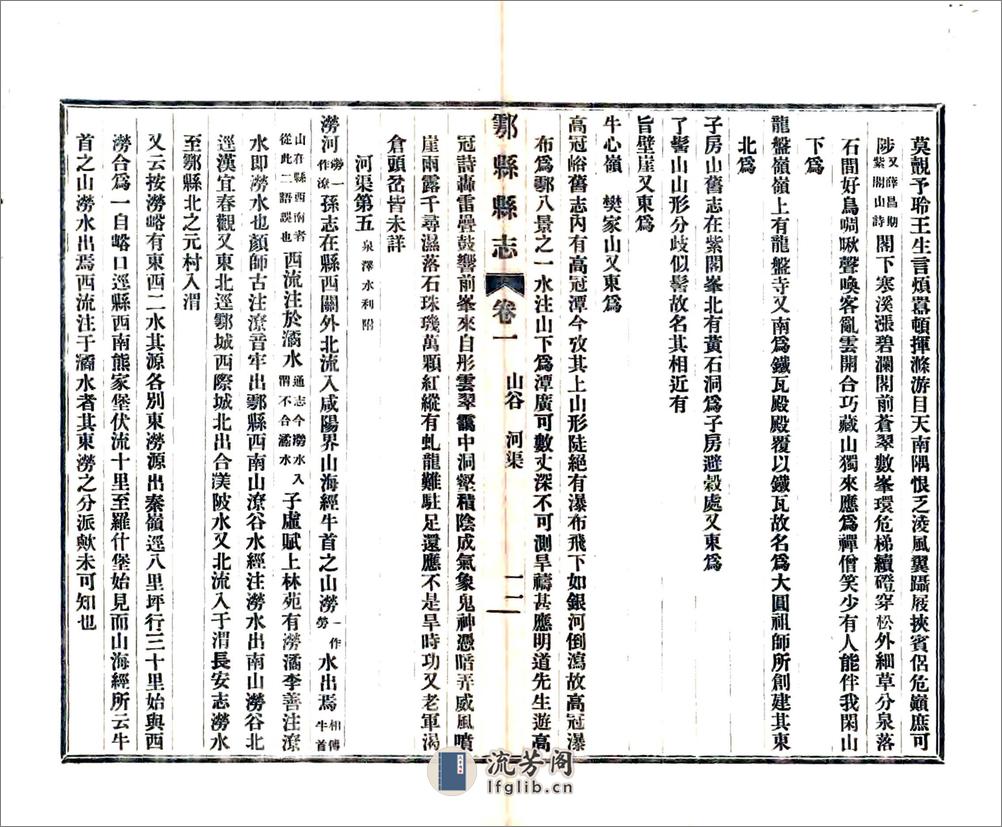 莫覯予聆王生言煩囂頓揮滌游目天南隅恨乏淩風翼躡屐挾賓侶危巔庶可
陟又薛昌期紫閣山詩閣下寒溪漲碧瀾閣前蒼翠數峯環危梯續磴穿松外細草分泉落
石間好鳥啁啾聲喚客亂雲開合巧藏山獨來應爲禪僧笑少有人能伴我閑山
下爲
龍盤嶺嶺上有龍盤寺又南爲鐵瓦殿殿覆以鐵瓦故名爲大圓祖師所創建其東
北爲
子房山舊志在紫閣峯北有黃石洞爲子房避穀處又東爲
了髻山山形分歧似髻故名其相近有
旨壁崖又東爲
牛心嶺　樊家山又東爲
高冠峪舊志內有高冠潭今攷其上山形陡絕有瀑布飛下如銀河倒瀉故高冠瀑
布爲鄠八景之一水注山下爲潭廣可數丈深不可測旱禱甚應明道先生遊高
鄠縣縣志　卷一　山谷　河渠　二一
冠詩轟雷疊鼓響前峯來自彤雲翠靄中洞壑積陰成氣象鬼神憑暗弄威風噴
崖雨露千尋濕落石珠璣萬顆紅縱有虬龍難駐足還應不是旱時功又老軍渴
倉頭岔皆未詳
河渠第五泉澤水利附
澇河澇一作潦孫志在縣西關外北流入咸陽界山海經牛首之山澇一作勞水出焉相傅牛首
山在縣西南者從此二語誤也西流注於潏水通志今澇水入渭不合潏水子虛賦上林苑有澇潏李善注潦
水即澇水也顏師古注潦音牢出鄠縣西南山潦谷水經注澇水出南山澇谷北
逕漢宜春觀又東北逕鄠城西際城北出合渼陂水又北流入于渭長安志澇水
至鄠縣北之元村入渭
又云按澇峪有東西二水其源各別東澇源出秦嶺逕八里坪行三十里始與西
澇合爲一自峪口逕縣西南熊家堡伏流十里至羅什堡始見而山海經所云牛
首之山澇水出焉西流注于潏水者其東澇之分派歟未可知也
流芳阁
lfglib.cn